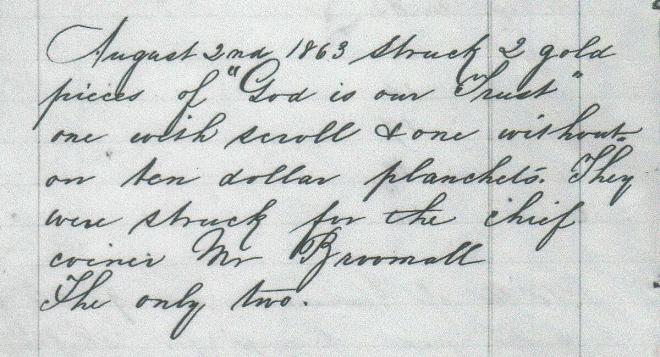 August 2nd 1863 struck 2 gold
pieces of "God is our Trust"
one with scroll & one without
on ten dollar planchets. They
were struck for the chief
coiner Mr Broomall
The only two.